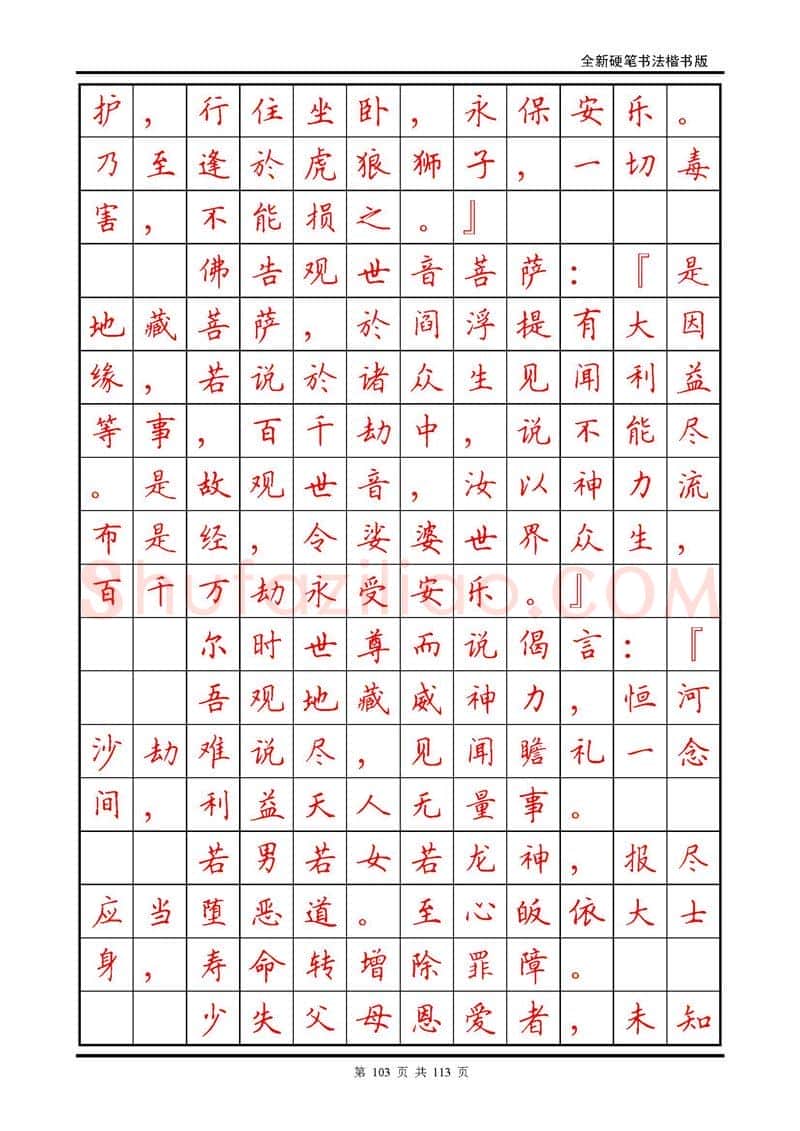 全新硬笔书法楷书版
护，行住坐卧，永保安乐。
乃至逢於虎狼狮子，一切毒
害，不能损之。』
佛告观世音菩萨：『是
地藏菩萨，於阎浮提有大因
缘，若说於诸众生见闻利益
等事，百千劫中，说不能尽
。是故观世音，汝以神力流
布是经，令娑婆世界众生，
百千万劫永受安乐。』
Shufaziliao.com
尔时世尊而说偈言：『
吾观地藏威神力，恒河
沙劫难说尽，见闻瞻礼一念
间，利益天人无量事。
若男若女若龙神，报尽
应当堕恶道。至心皈依大士
身，寿命转增除罪障。
少失父母恩爱者，未知
第 103 页 共 113 页